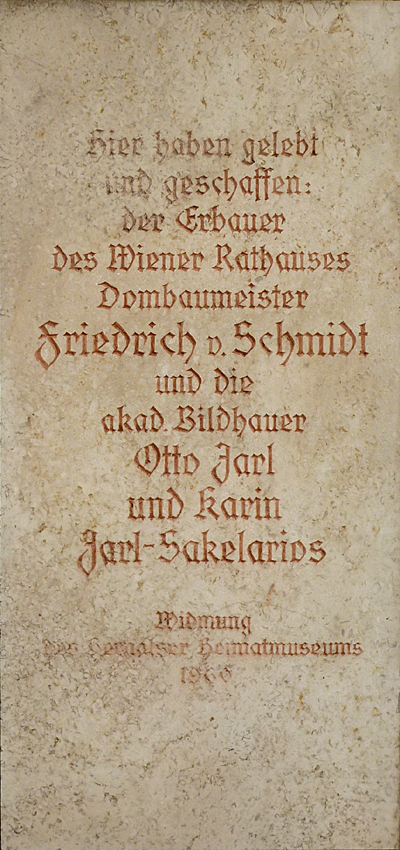 Hier haben gelebt
und geschaffen:
der Erbauer
des Wiener Rathauses
Dombaumeister
Friedrich v. Schmidt
und die
akad. Bildhauer
Otto Jarl
und Karin
Jarl-Sakelarios
Widmung
des Hernalser Heimatmuseums
1966